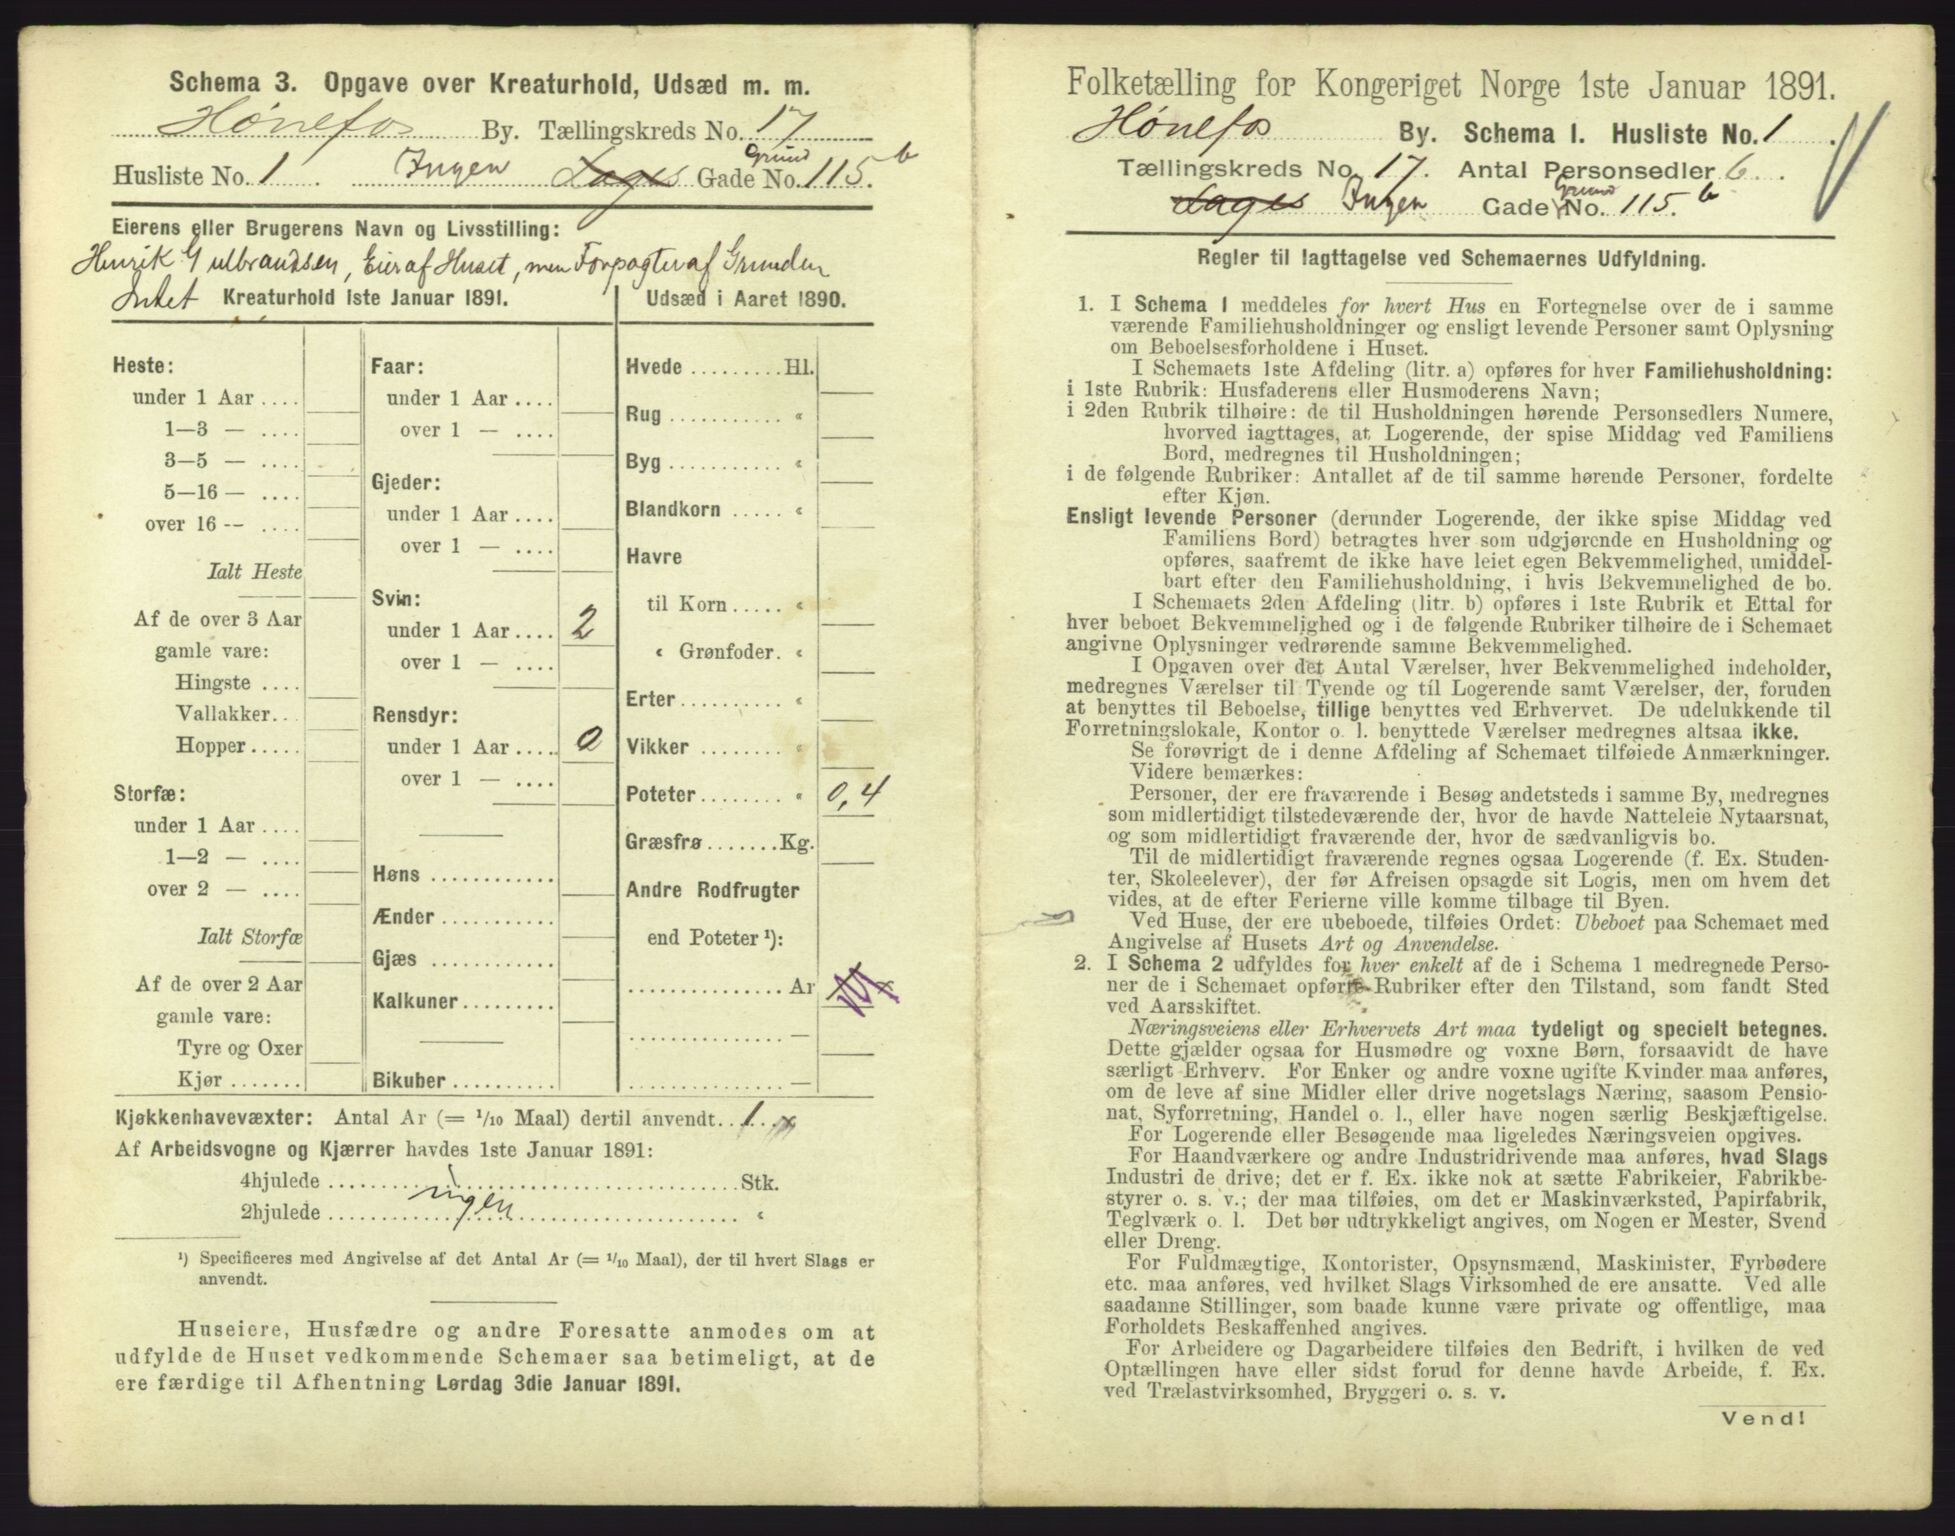 Schema 3. Opgave over Kreaturhold, Udsæd m. m.
Hønefos By. Tællingskreds No. 17
Husliste No. 1 Ingen Lages Gade Grund No. 115 b.
Eierens eller Brugerens Navn og Livsstilling:
Henrik Gulbrandsen, Eier af Huset, men Forpagter af Grunden
Intet Kreaturhold 1ste Januar 1891.
Heste:
under 1 Aar ....
1—3 — ....
3—5 — ....
5—16 — ....
over 16 -- ....
Ialt Heste
Af de over 3 Aar
gamle vare:
Hingste ....
Vallakker...
Hopper.....
Storfæ:
under 1 Aar ....
1—2 — ....
over 2 — ....
Ialt Storfæ
Af de over 2 Aar
gamle vare:
Tyre og Oxer
Kjør .......
Faar:
under 1 Aar ....
over 1 — ....
Gjeder:
under 1 Aar ....
over 1 — ....
Svin:
under 1 Aar .... 2
over 1 — ....
Rensdyr:
under 1 Aar .... 0
over 1 — ....
Høns ............
Ænder ...........
Gjæs ............
Kalkuner.........
Bikuber ..........
Udsæd i Aaret 1890.
Hvede .........Hl.
Rug ........... «
Byg ........... «
Blandkorn ..... «
Havre
til Korn ..... «
« Grønfoder. «
Erter .......... «
Vikker ........ «
Poteter ........ « 0,4
Græsfrø .......Kg.
Andre Rodfrugter
end Poteter ¹):
............... Ar x
............... —
............... —
Kjøkkenhavevæxter: Antal Ar (= 1/10 Maal) dertil anvendt. 1 x
Af Arbeidsvogne og Kjærrer havdes 1ste Januar 1891:
4hjulede ........................................ Stk.
ingen
2hjulede ........................................ «
¹) Specificeres med Angivelse af det Antal Ar (= 1/10 Maal), der til hvert Slags er
anvendt.
Huseiere, Husfædre og andre Foresatte anmodes om at
udfylde de Huset vedkommende Schemaer saa betimeligt, at de
ere færdige til Afhentning Lørdag 3die Januar 1891.
Folketælling for Kongeriget Norge 1ste Januar 1891.
Hønefos By. Schema I. Husliste No. 1
Tællingskreds No. 17. Antal Personsedler 6.
Lages Ingen Gade Grund No. 115. b
Regler til Iagttagelse ved Schemaernes Udfyldning.
1. I Schema 1 meddeles for hvert Hus en Fortegnelse over de i samme
værende Familiehusholdninger og ensligt levende Personer samt Oplysning
om Beboelsesforholdene i Huset.
I Schemaets 1ste Afdeling (litr. a) opføres for hver Familiehusholdning:
i 1ste Rubrik: Husfaderens eller Husmoderens Navn;
i 2den Rubrik tilhøire: de til Husholdningen hørende Personsedlers Numere,
hvorved iagttages, at Logerende, der spise Middag ved Familiens
Bord, medregnes til Husholdningen;
i de følgende Rubriker: Antallet af de til samme hørende Personer, fordelte
efter Kjøn.
Ensligt levende Personer (derunder Logerende, der ikke spise Middag ved
Familiens Bord) betragtes hver som udgjørende en Husholdning og
opføres, saafremt de ikke have leiet egen Bekvemmelighed, umiddel-
bart efter den Familiehusholdning, i hvis Bekvemmelighed de bo.
I Schemaets 2den Afdeling (litr. b) opføres i 1ste Rubrik et Ettal for
hver beboet Bekvemmelighed og i de følgende Rubriker tilhøire de i Schemaet
angivne Oplysninger vedrørende samme Bekvemmelighed.
I Opgaven over det Antal Værelser, hver Bekvemmelighed indeholder,
medregnes Værelser til Tyende og til Logerende samt Værelser, der, foruden
at benyttes til Beboelse, tillige benyttes ved Erhvervet. De udelukkende til
Forretningslokale, Kontor o. l. benyttede Værelser medregnes altsaa ikke.
Se forøvrigt de i denne Afdeling af Schemaet tilføiede Anmærkninger.
Videre bemærkes:
Personer, der ere fraværende i Besøg andetsteds i samme By, medregnes
som midlertidigt tilstedeværende der, hvor de havde Natteleie Nytaarsnat,
og som midlertidigt fraværende der, hvor de sædvanligvis bo.
Til de midlertidigt fraværende regnes ogsaa Logerende (f. Ex. Studen-
ter, Skoleelever), der før Afreisen opsagde sit Logis, men om hvem det
vides, at de efter Ferierne ville komme tilbage til Byen.
Ved Huse, der ere ubeboede, tilføies Ordet: Ubeboet paa Schemaet med
Angivelse af Husets Art og Anvendelse.
2. I Schema 2 udfyldes for hver enkelt af de i Schema 1 medregnede Perso-
ner de i Schemaet opførte Rubriker efter den Tilstand, som fandt Sted
ved Aarsskiftet.
Næringsveiens eller Erhvervets Art maa tydeligt og specielt betegnes.
Dette gjælder ogsaa for Husmødre og voxne Børn, forsaavidt de have
særligt Erhverv. For Enker og andre voxne ugifte Kvinder maa anføres,
om de leve af sine Midler eller drive nogetslags Næring, saasom Pensio-
nat, Syforretning, Handel o. l., eller have nogen særlig Beskjæftigelse.
For Logerende eller Besøgende maa ligeledes Næringsveien opgives.
For Haandværkere og andre Industridrivende maa anføres, hvad Slags
Industri de drive; det er f. Ex. ikke nok at sætte Fabrikeier, Fabrikbe-
styrer o. s. v.; der maa tilføies, om det er Maskinværksted, Papirfabrik,
Teglværk o. l. Det bør udtrykkeligt angives, om Nogen er Mester, Svend
eller Dreng.
For Fuldmægtige, Kontorister, Opsynsmænd, Maskinister, Fyrbødere
etc. maa anføres, ved hvilket Slags Virksomhed de ere ansatte. Ved alle
saadanne Stillinger, som baade kunne være private og offentlige, maa
Forholdets Beskaffenhed angives.
For Arbeidere og Dagarbeidere tilføies den Bedrift, i hvilken de ved
Optællingen have eller sidst forud for denne havde Arbeide, f. Ex.
ved Trælastvirksomhed, Bryggeri o. s. v.
Vend!